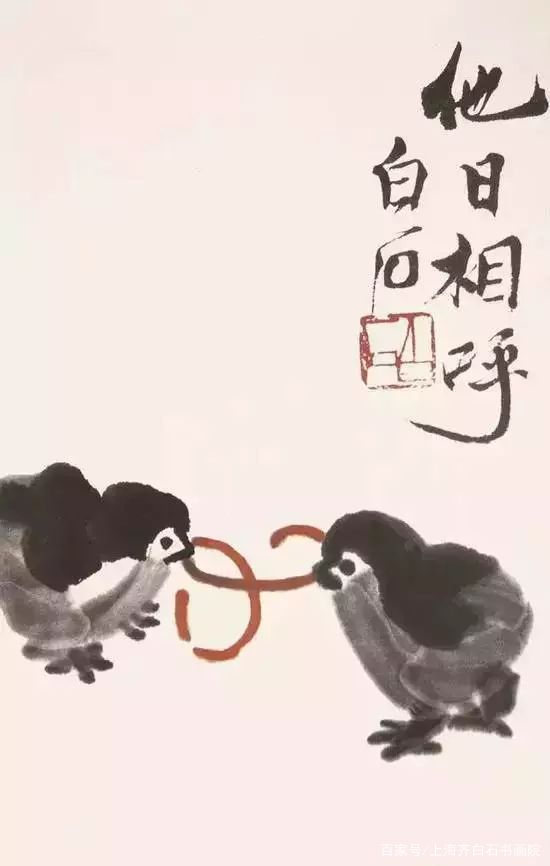 他日相呼
白石
百家号/上海齐白石书画院